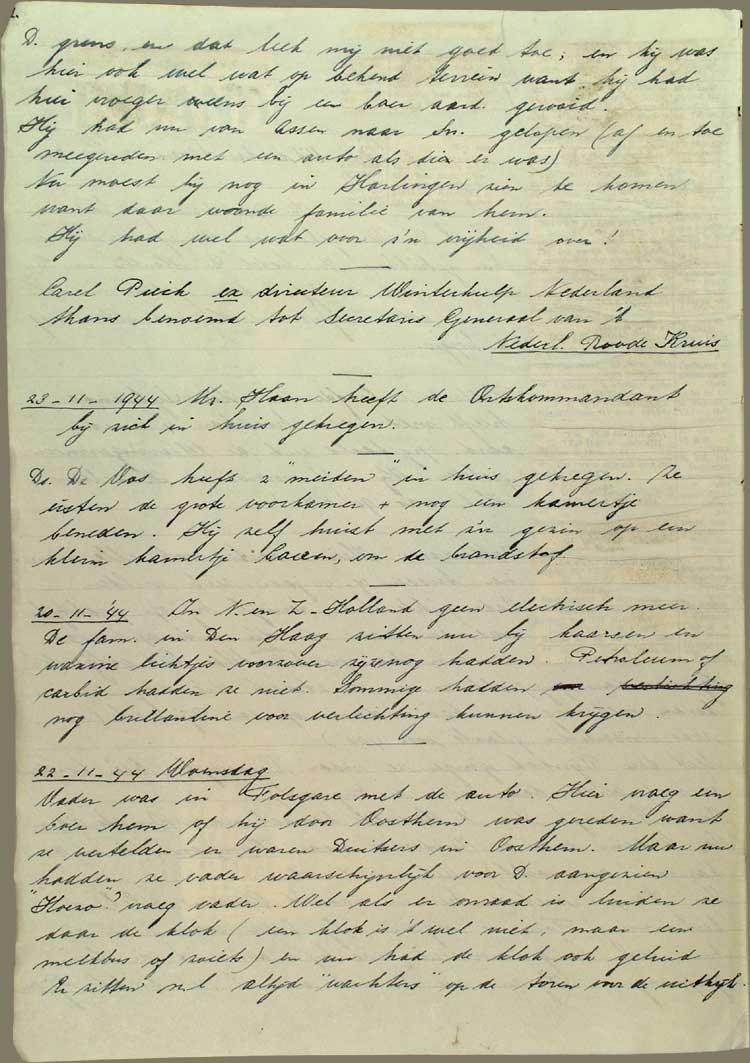 D. grens, en dat leek mij niet goed toe; en hij was
hier ook wel wat op bekend terrein want hij had
hier vroeger weens bij een boer aard. gerooid.
Hij had nu van Assen naar Sn. gelopen (af en toe
meegereden met een auto als die er was)
Nu moest hij nog in Harlingen zien te komen
want daar woonde familie van hem.
Hij had wel wat voor z'n vrijheid over!
Carel Piek ex directeur Winterhulp Nederland
thans benoemd tot Secretaris Generaal van 't
Nederl. Roode Kruis
23-11-1944 Mr. Haan heeft de Ortskommandant
bij zich in huis gekregen.
Ds. De Vos heeft 2 "meiden" in huis gekregen. Ze
eisten de grote voorkamer + nog een kamertje
beneden. Hij zelf huist met z'n gezin op een
klein kamertje boven, om de brandstof.
20-11-'44 In N. en Z-Holland geen electrisch meer.
De fam. in Den Haag zitten nu bij kaarsen en
waxine lichtjes voorzover zijze nog hadden. Petroleum of
carbid hadden ze niet. Sommige hadden
nog brillantine voor verlichting kunnen krijgen.
22-11-44 Woensdag
Vader was in Folsgare met de auto. Hier vroeg een
boer hem of hij door Oosthem was gereden want
ze vertelden er waren Duitsers in Oosthem. Maar nu
hadden ze vader waarschijnlijk voor D. aangezien
"Hoezo"? vroeg vader. Wel als er onraad is luiden ze
daar de klok (een klok is 't wel niet, maar een
melkbus of zoiets) en nu had de klok ook geluid
Er zitten n.l altijd "wachters" op de toren voor de uitkijk.